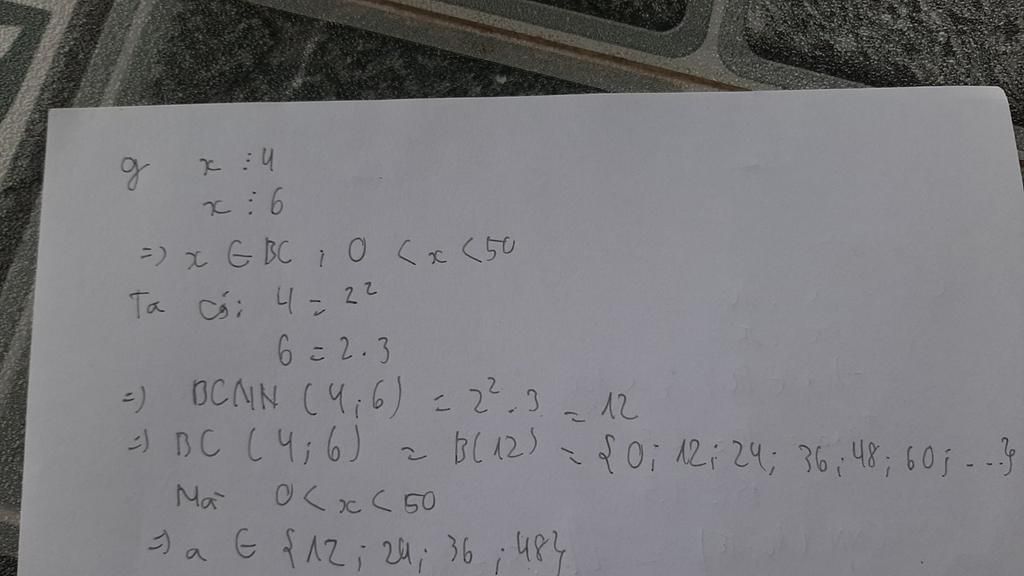 g x ⋮ 4
x ⋮ 6
=> x ∈ BC ; 0 < x < 50
Ta có: 4 = 2²
6 = 2 . 3
=> BCNN (4;6) = 2² . 3 = 12
=> BC (4;6) = B(12) = {0; 12; 24; 36; 48; 60; ...}
Mà 0 < x < 50
=> a ∈ {12; 24; 36; 48}